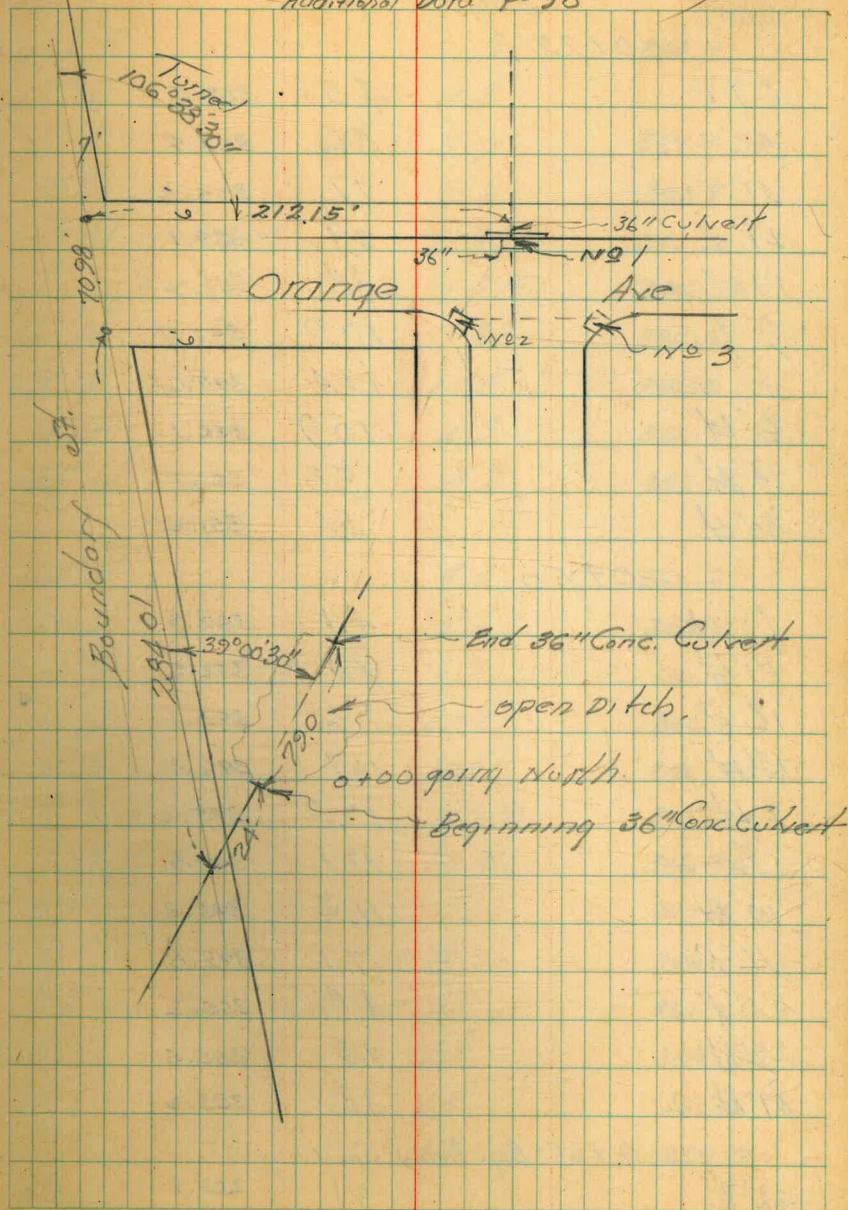 Additional Data P-30
Turned
106°38'30"
7'
6'
212.15'
36" Culvert
36"
Nº 1
70.98
Orange Ave
Nº 2
Nº 3
6'
Boundary St.
284.01
39°00'30"
End 36" Conc. Culvert
79.0
open Ditch.
0+00 going North.
24'
Beginning 36" Conc Culvert